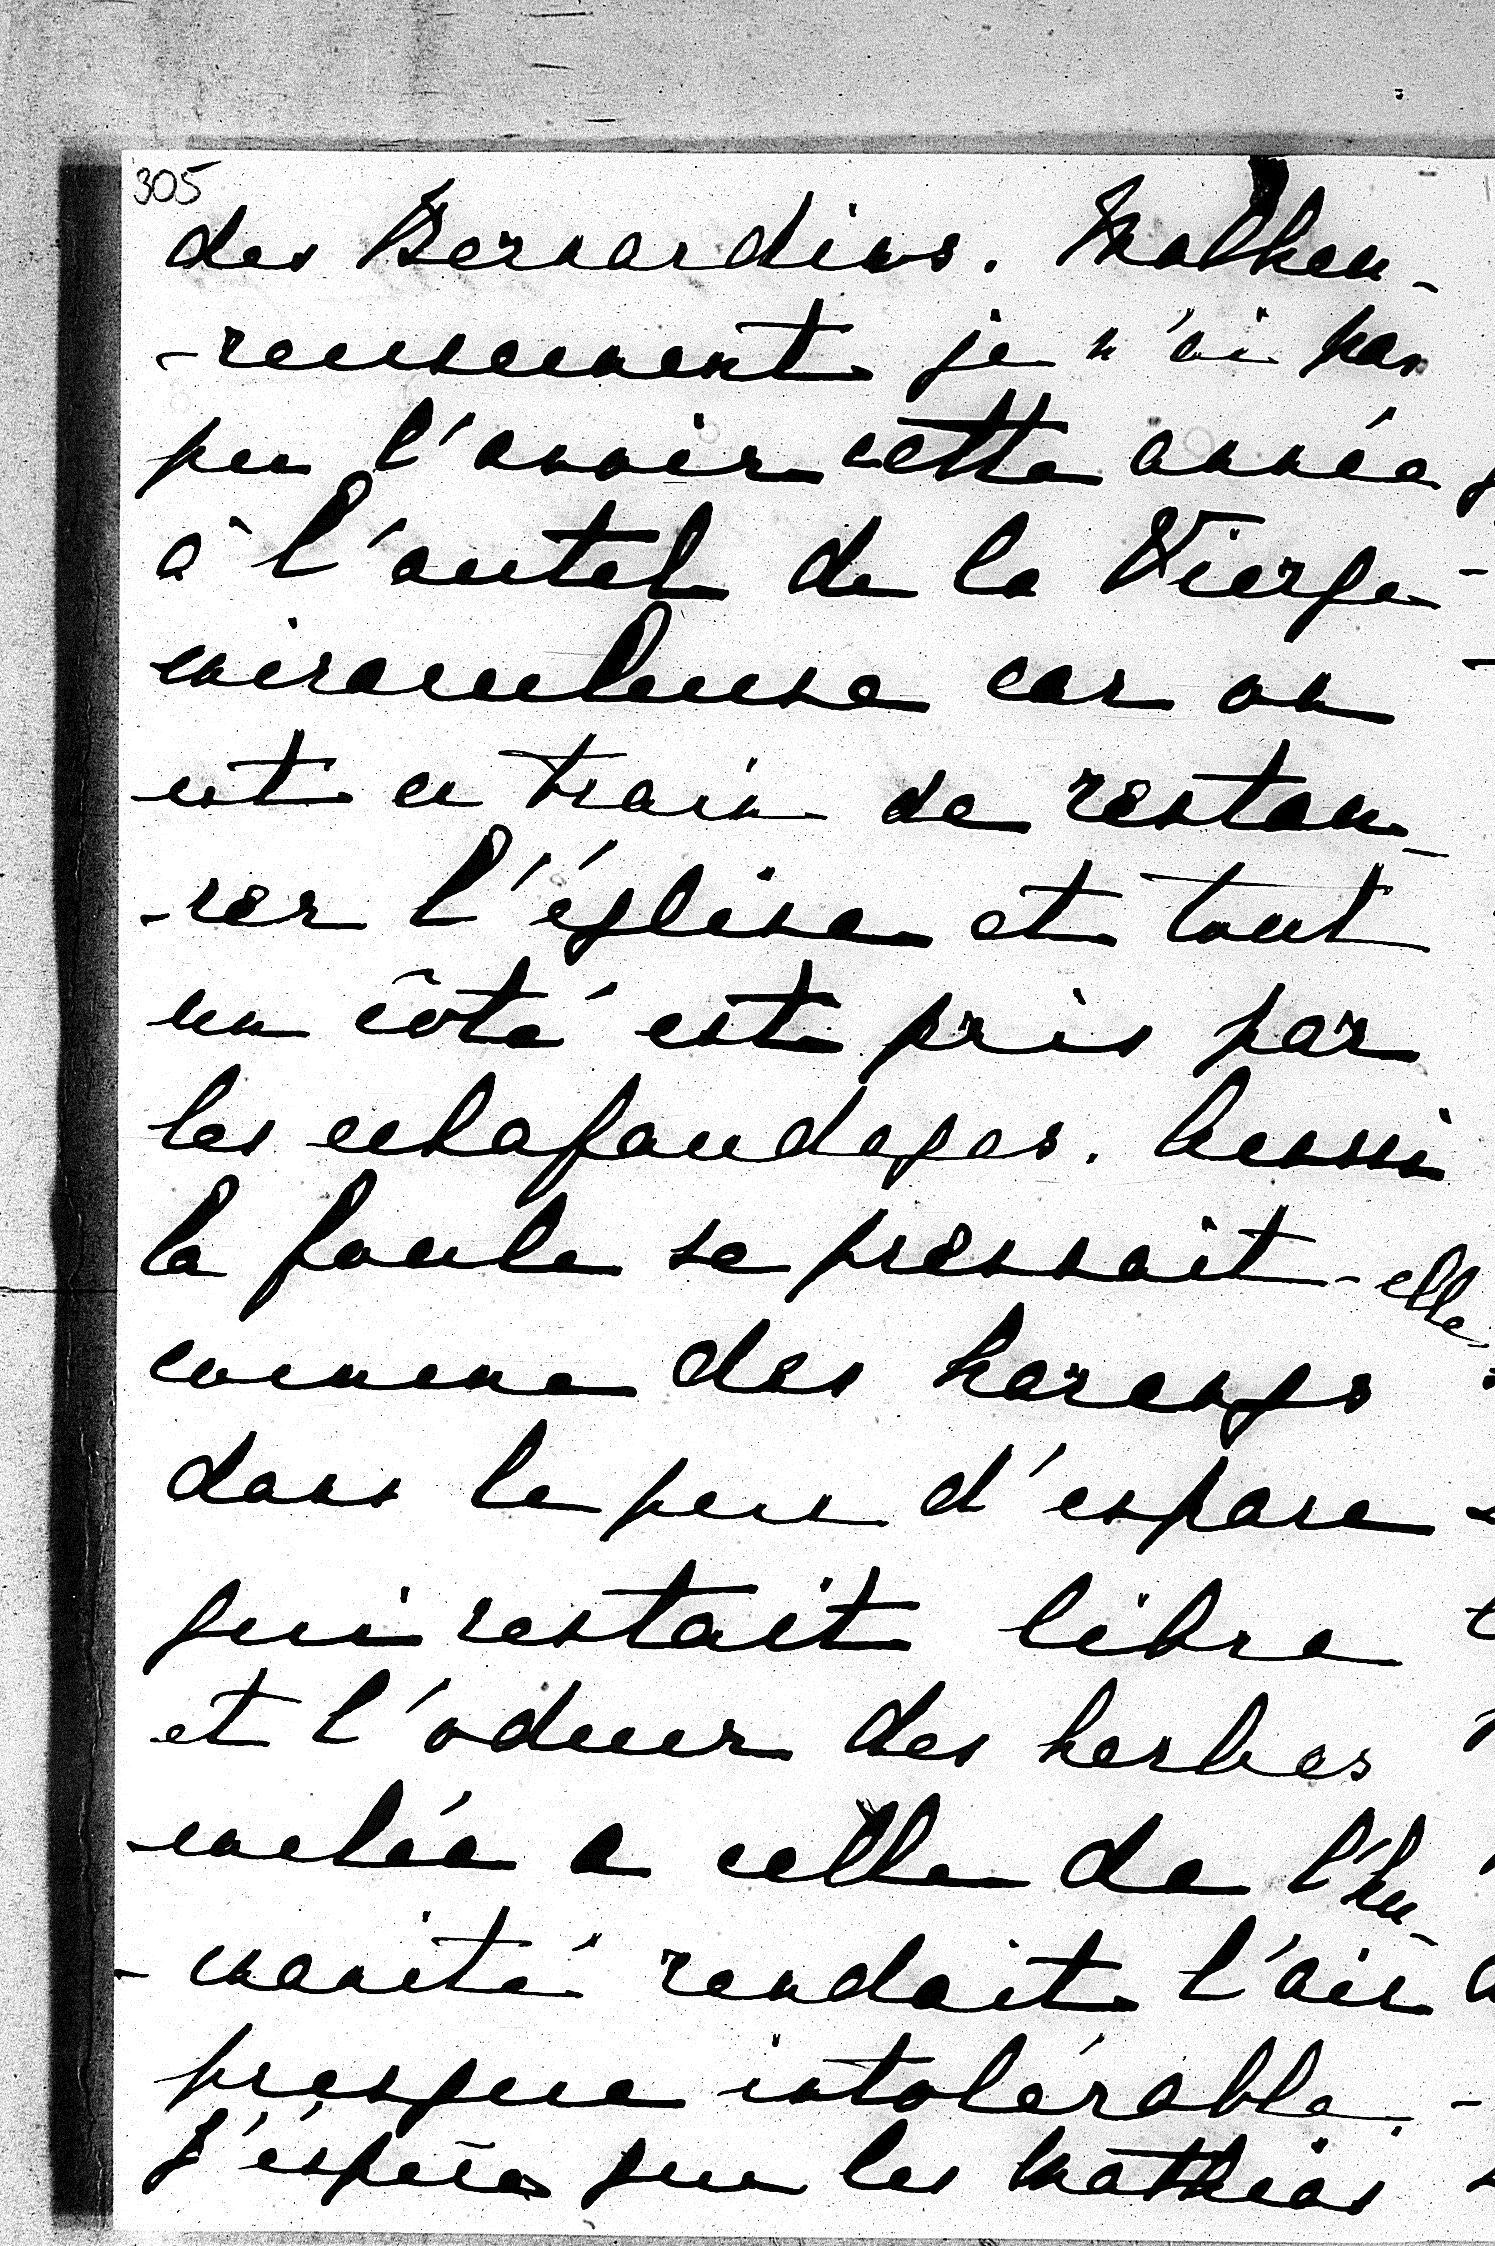 305
des Bernardins. Malheu-
-reusement je n'ai pas
pu l'avoir cette année
à l'autel de la Vierge
miraculeuse car on
est en train de restau-
-rer l'église et tout
un côté est pris par
les echafaudages. Aussi
la foule se pressait-elle
comme des harengs
dans le peu d'espace
qui restait libre
et l'odeur des herbes
mêlée a celle de l'hu-
-manité rendait l'air
presque intolérable.
J'éspère que les Mathias